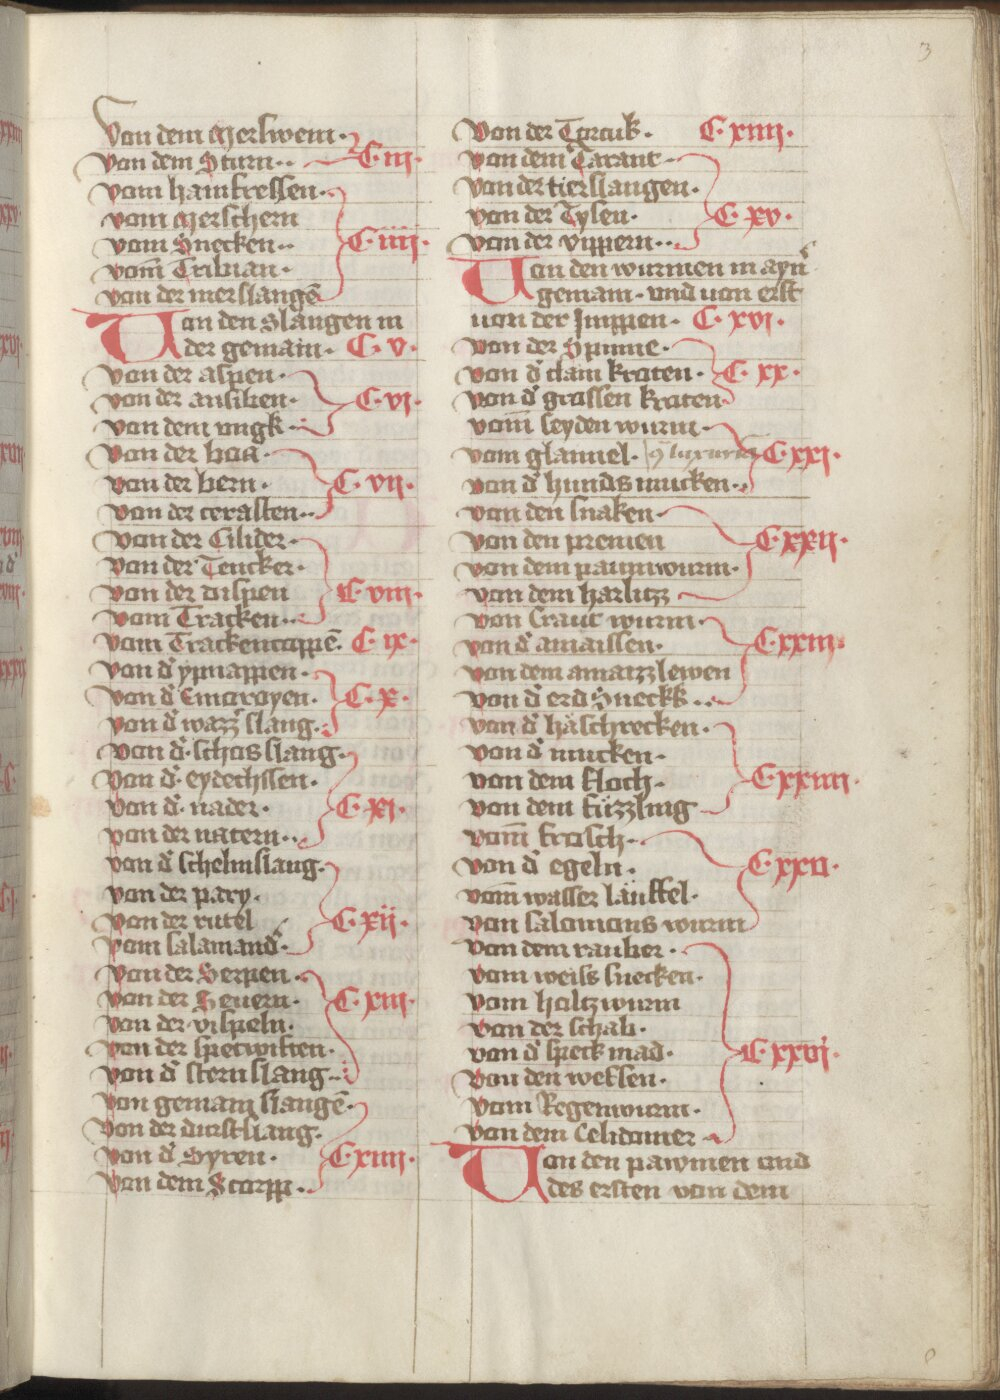 3
Von dem Merswein·
Von dem Sturn··
C·iii·
vom hainfressen·
vom Merschern
vom Snecken··
vom̄ Tribian·
von der merslangē
C·iiii·
Von den slangen in
der gemain· C·v·
von der aspen·
von der ansiben·
von dem ungk··
C·vi·
von der boa·
von der bern·
von der cerasten··
C·vii·
von der Cilider·
von der Tencker·
von der dispen
vom Tracken··
C·viii·
vom Trackencoppē· C·ix·
von d' ypnappen·
von d' Emoroyen·
von d' wazz' slang·
C·x·
von d' schosslang·
von d' eydechssen·
von d' nader·
von der natern··
C·xi·
von d' schelmslang·
von der pary·
von der rutel
vom salamand'·
C·xii·
von der Serpen·
von der Seuern·
von der vispeln·
von der spectwiften·
von d' stern slang··
C·xiii·
von gemain slangē·
von der durstslang·
von d' Syren·
von dem Scorpp·
C·xiiii·
Von der Torcuk· C·xiiii·
von dem Tarant·
von der tierslangen·
von der Tysen·
von der vippern··
C·xv·
Von den wurmen in ayn̄
gemain· und von erst
von der Imppen· C·xvi·
von der Spinne·
von d' clain kroten·
von d' grossen kroten
C·xx·
vom̄ seyden wurm·
vom glanuel·
von d' hunds mucken·
C·xxi·
von den snaken·
von den premen
von dem paumwurm·
von dem harlitz
C·xxii·
von Craut wurm·
von d' amaissen·
von dem amaizzlewen
von d' erd Sneckk··
C·xxiii·
von d' häschrecken·
von d' mucken·
von dem floch·
von dem füzzling
C·xxiiii·
vom̄ frosch·
von d' egeln·
vom̄ wasser läuffel·
von salomons wurm
C·xxv·
von dem rauber·
vom weiss snecken·
vom holtzwurm
von der schab·
von d' speck mad·
von den wefsen·
vom Regenwurm·
von dem Celidonier
C·xxvi·
Von den pawmen und
des ersten von dem